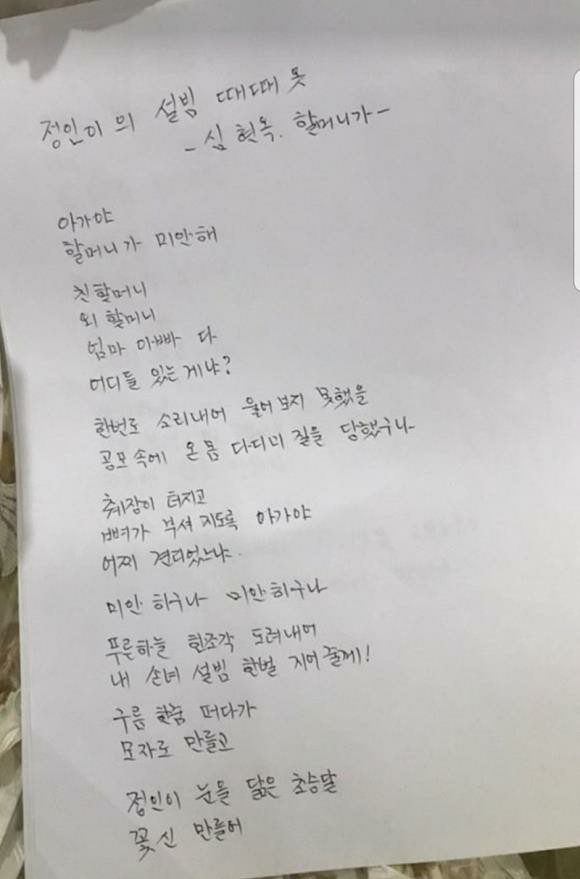 정인이의 설빔 때때옷
- 심현옥. 할머니가 -
아가야
할머니가 미안해
친할머니
외할머니
엄마 아빠 다
어디들 있는게냐?
한번도 소리내어 울어보지 못했을
공포속에 온몸 다디미 질을 당했구나
췌장이 터지고
뼈가 부셔지도록 아가야
어찌 견디었느냐.
미안 하구나 미안하구나
푸른하늘 한조각 도려내어
내 손녀 설빔 한벌 지어줄께!
구름 한줌 떠다가
모자로 만들고
정인이 눈을 닮은 초승달
꽃신 만들어